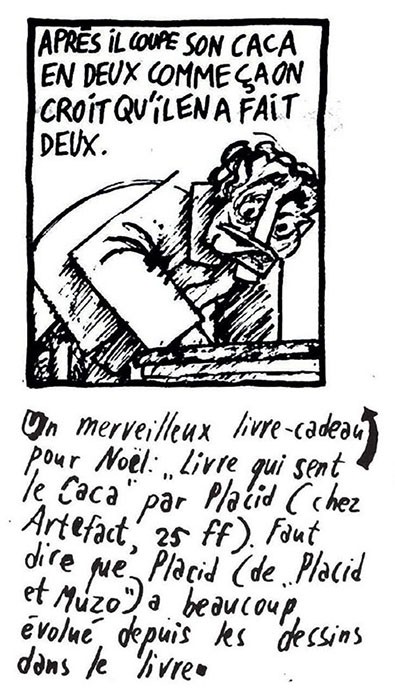 APRÈS IL COUPE SON CACA
EN DEUX COMME ÇA ON
CROIT QU'IL EN A FAIT
DEUX.
Un merveilleux livre-cadeau
pour Noël: „Livre qui sent
le Caca" par Placid (chez
Artefact, 25 ff). Faut
dire que Placid (de „Placid
et Muzo") a beaucoup
évolué depuis les dessins
dans le livre.